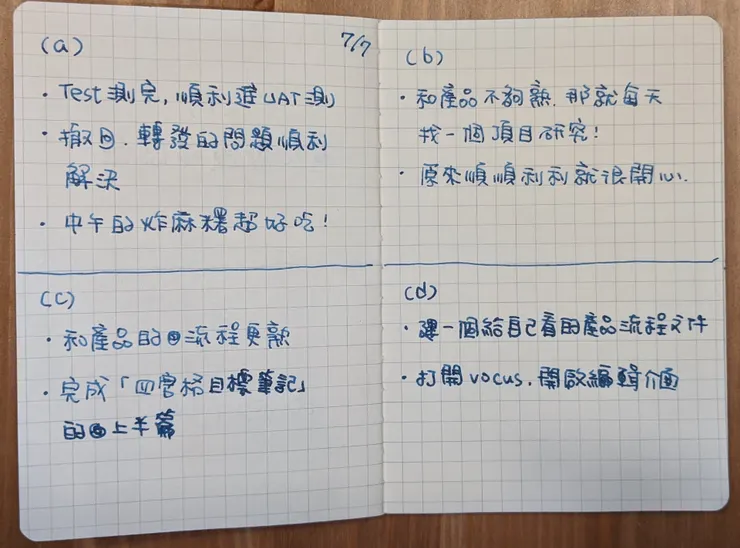 (a) 7/7
・Test測完,順利進UAT測
・撤回、轉發的問題順利
解決
・中午的炸麻糬超好吃!
(b)
・和產品不夠熟,那就每天
找一個項目研究!
・原來順順利利就很開心.
(c)
・和產品的流程更熟
・完成「四宮格目標筆記」
的上半篇
(d)
・建一個給自己看的產品流程文件
・打開vocus,開啟編輯介面